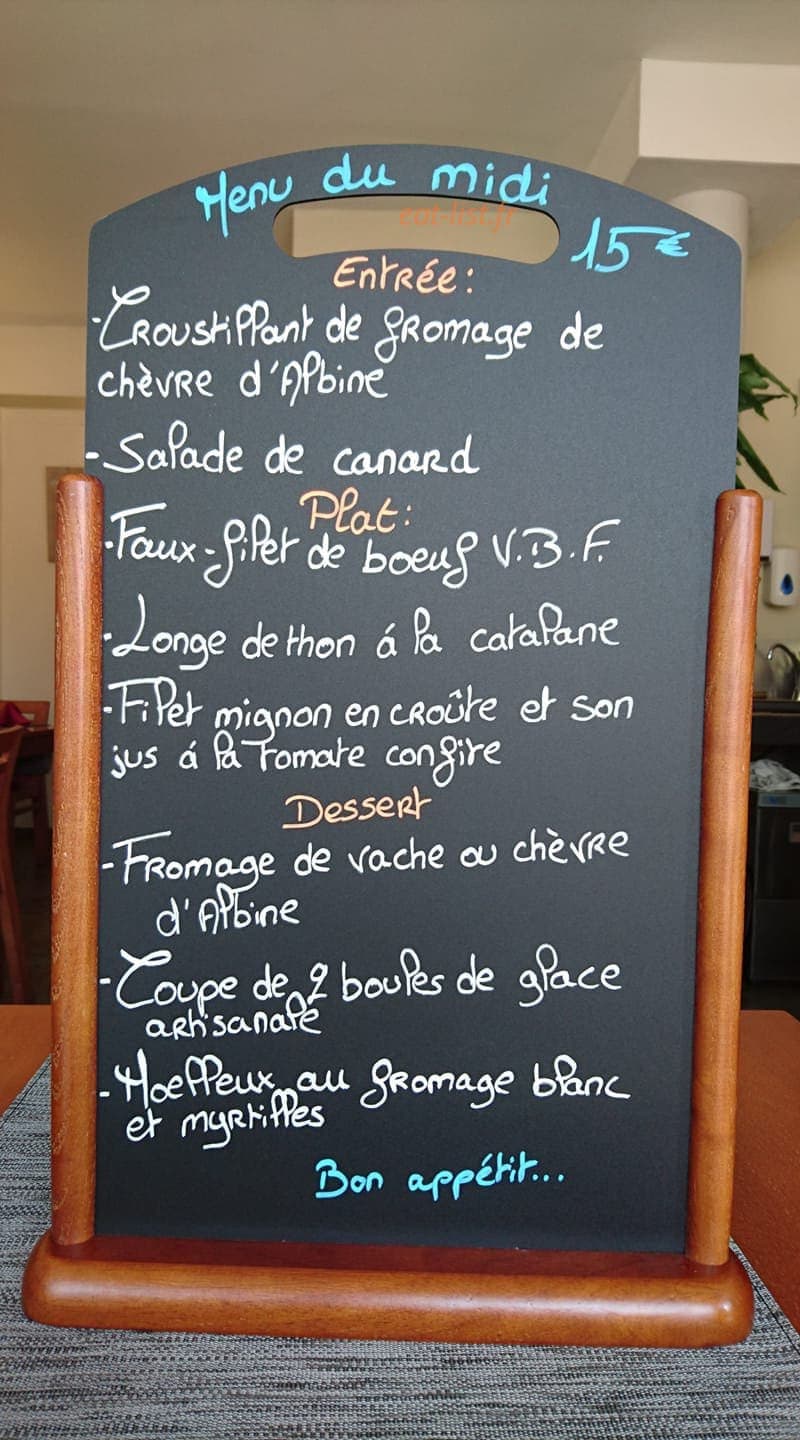 Menu du midi
eat-list.fr
15€
Entrée:
-Croustillant de fromage de
chèvre d'Albine
-Salade de canard
Plat:
-Faux-filet de boeuf V.B.F.
-Longe de thon á la catalane
-Filet mignon en croûte et son
jus á la tomate confite
Dessert
-Fromage de vache ou chèvre
d'Albine
-Coupe de 2 boules de glace
artisanale
-Moelleux au fromage blanc
et myrtilles
Bon appétit...